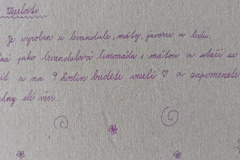 Je vyrobena z levandule, máty, javoru a ledu.
jako levandulová limonáda s mátou a stačí se
a na 9 hodin budeš veselí ♡ a zapomeneš
zlé věci.